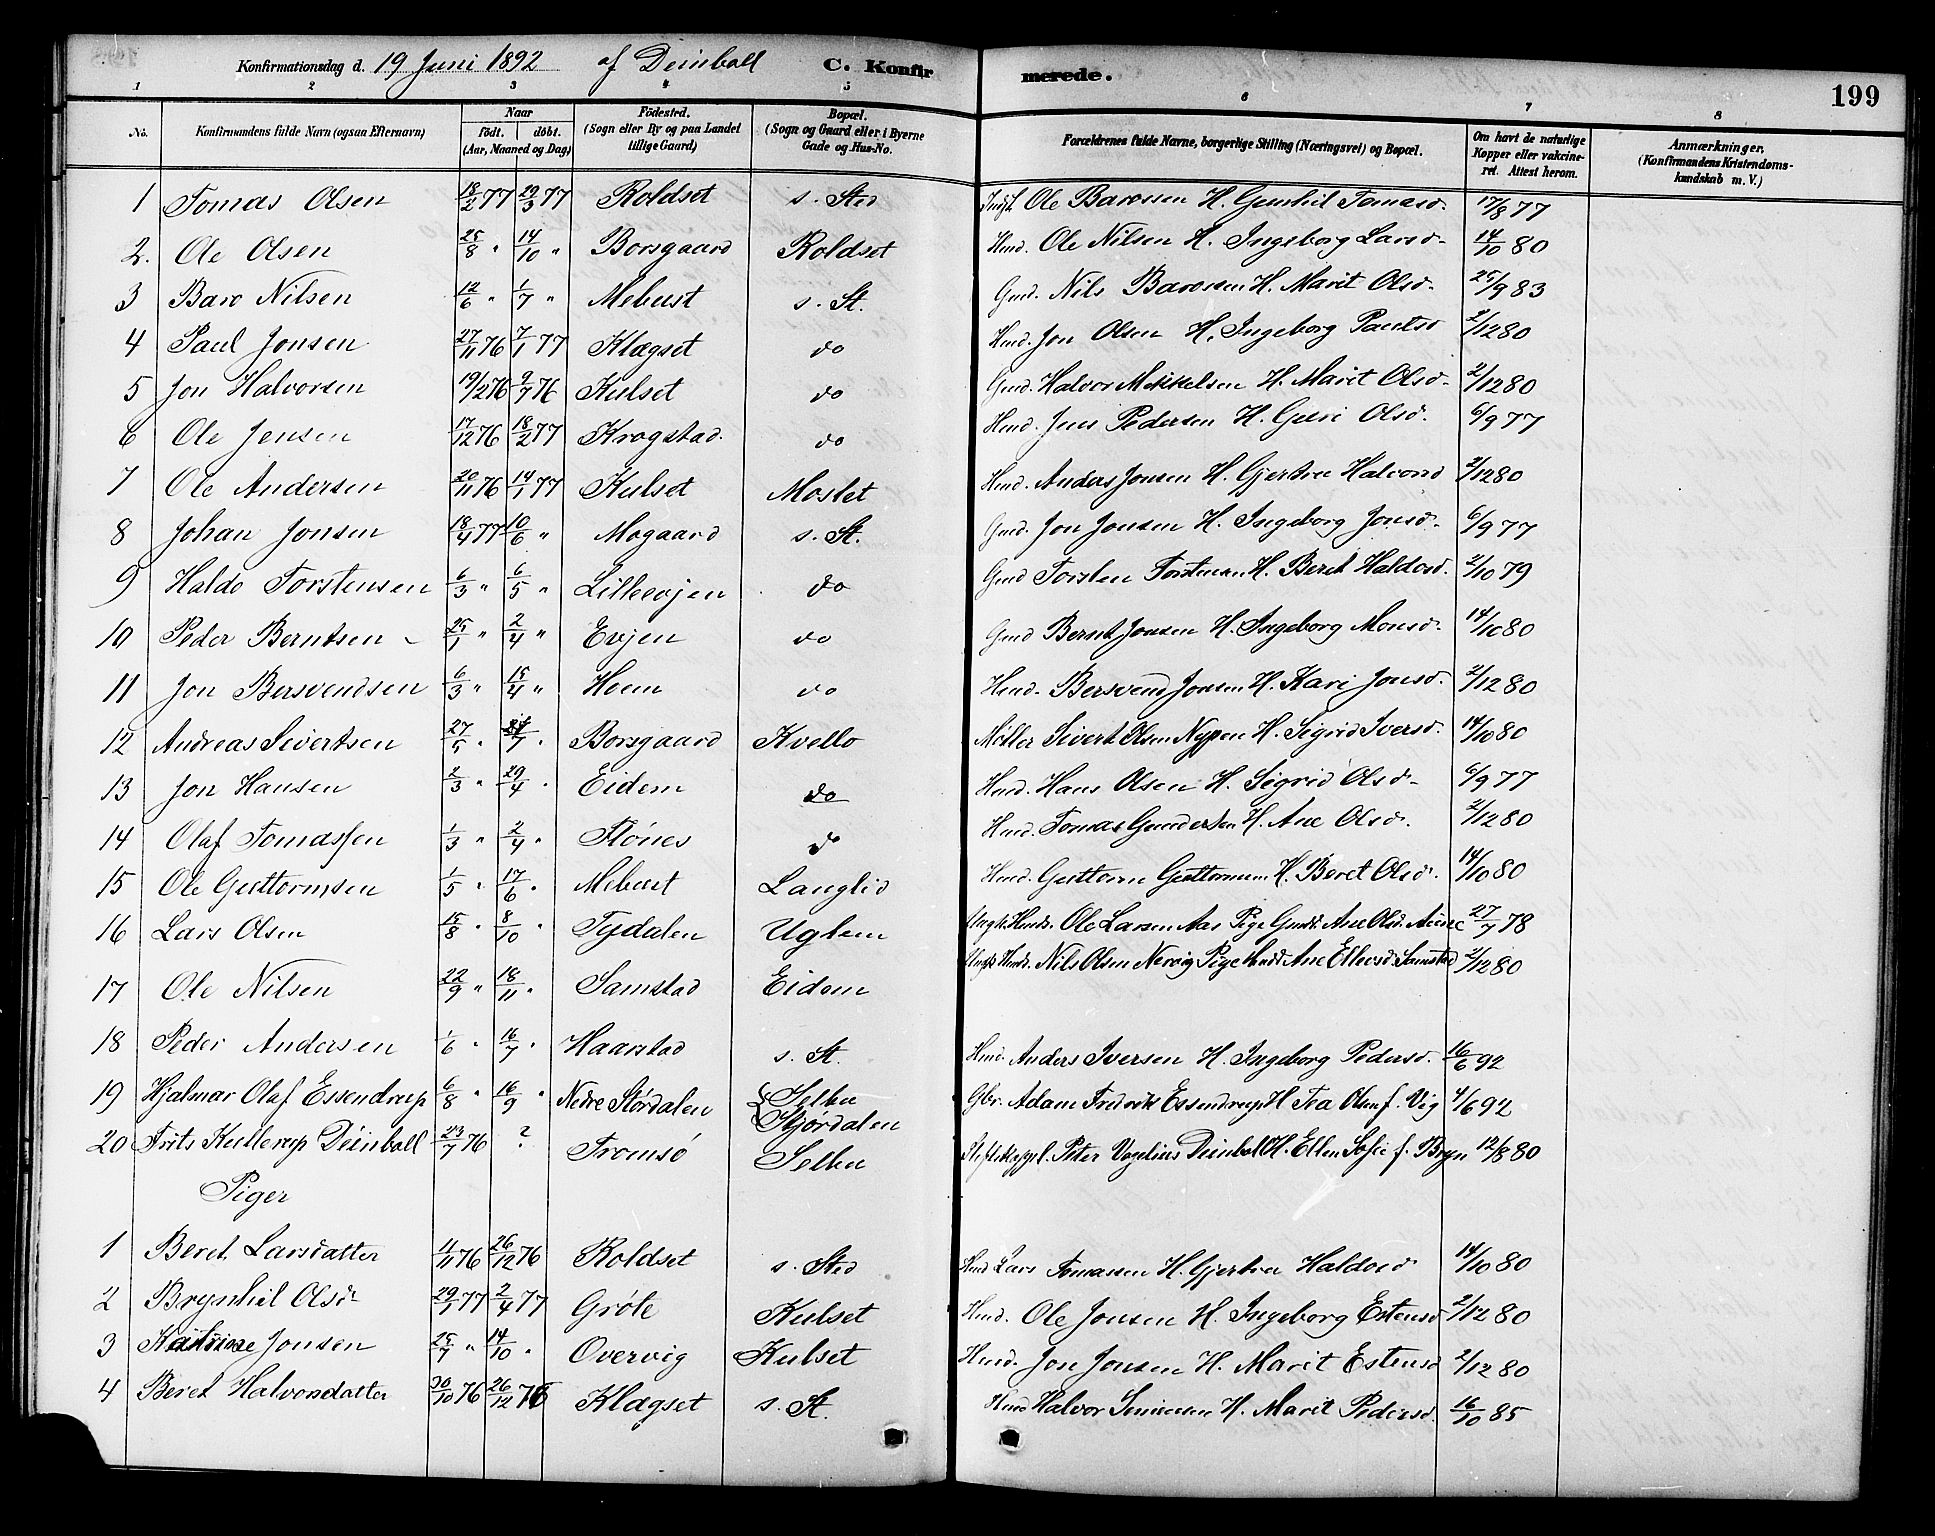 Konfirmationsdag d. 19 Juni 1892 af Deinboll C. Konfirmerede. 199
1 2 3 4 5 6 7 8
No. Konfirmandens fulde Navn (ogsaa Efternavn) Naar födt. döbt. (Aar, Maaned og Dag) Födested. (Sogn eller By og paa Landet tillige Gaard) Bopæl. (Sogn og Gaard eller i Byerne Gade og Hus-No. Forældrenes fulde Navne, borgerlige Stilling (Næringsvei) og Bopæl. Om havt de naturlige Kopper eller vakcineret. Attest herom. Anmærkninger. (Konfirmandens Kristendomskundskab m. V.)
1 Tomas Olsen 18/2 77 29/3 77 Roldset s. Sted Ole Barosen H. Gunhil Tomasd. 17/8 77
2. Ole Olsen 25/8 " 14/10 " Borsgaard Roldset Hmd. Ole Nilsen H. Ingeborg Larsd. 14/10 80
3 Baro Nilsen 12/6 " 1/7 " Mebust s. St. Gmd. Nils Barosen H. Marit Olsd. 25/9 83
4 Paul Jonsen 27/11 76 7/1 77 Klægset do Hmd. Jon Olsen H. Ingeborg Paulsd 2/12 80
5 Jon Halvorsen 19/2 76 9/7 76 Kulset do Gmd. Halvor Mikkelsen H. Marit Olsd. 2/12 80
6 Ole Jensen 17/12 76 18/2 77 Krogstad. do Hmd. Jens Pedersen H. Guri Olsd. 6/9 77
7 Ole Andersen 20/11 76 14/1 77 Kulset Moslet Hmd. Anders Jonsen H. Gjertru Halvorsd 2/12 80
8 Johan Jonsen 18/4 77 10/6 " Mogaard s. St. Gmd. Jon Jonsen H. Ingeborg Jonsd. 6/9 77
9 Haldo Torstensen 6/3 " 6/5 " Lilleevjen do Gmd Torsten Torstensen H. Beret Haldosd. 2/10 79
10 Peder Berntsen 25/1 " 2/4 " Evjen do Gmd Bernt Jonsen H. Ingeborg Monsd. 14/10 80
11 Jon Bersvendsen 6/3 " 15/4 " Hoem do Hmd. Bersvend Jonsen H. Kari Jonsd. 2/12 80
12 Andreas Sivertsen 27/5 " /7 " Borsgaard Kvello Möller Sivert Olsen Nypen H. Sigrid Iversd. 14/10 80
13 Jon Hansen 2/3 " 29/4 " Eidem do Hmd. Hans Olsen H. Sigrid Olsd. 6/9 77
14 Olaf Tomassen 1/3 " 2/4 " Stönes do Hmd. Tomas Gundersen H. Ane Olsd. 2/12 80
15 Ole Guttormsen 1/5 " 17/6 " Mebust Langlid Hmd. Guttorm Guttormsen H. Beret Olsd. 14/10 80
16 Lars Olsen 15/8 " 8/10 " Tydalen Uglem Ungk. Hmds. Ole Larsen Aas Pige Gmdd. Ane Olsd. Aune 27/7 78
17 Ole Nilsen 22/9 " 18/11 " Samstad Eidem Ungk. Hmds. Nils Olsen Nervig Pige Hmdd. Ane Ellevsd. Samstad 2/12 80
18 Peder Andersen 1/6 " 16/7 " Haarstad s. St. Hmd. Anders Iversen H. Ingeborg Pedersd. 16/6 92
19 Hjalmar Olaf Essendrup 6/8 " 16/9 " Nedre Stördalen Selbu Stjördalen Gbr. Adam Fredrik Essendrup H. Tea Olsen f. Vig 4/6 92
20 Frits Kullerup Deinboll 23/7 76 ? Tromsö Selbu Stiftskappl. Peter Vogelius Deinboll H. Ellen Sofie f. Bryn 12/8 80
Piger
1 Beret Larsdatter 11/11 76 26/12 76 Roldset s. Sted Hmd Lars Tomassen H. Gjertru Haldosd 14/10 80
2 Brynhil Olsd. 29/1 77 2/4 77 Gröte Kulset Hmd. Ole Jonsen H. Ingeborg Estensd 2/12 80
3 Katrine Jonsen 25/7 " 14/10 " Overvig Kulset Hmd. Jon Jonsen H. Marit Estensd 2/12 80
4 Beret Halvorsdatter 30/10 76 26/12 76 Klægset s. St. Hmd Halvor H. Marit Pedersd. 16/10 85